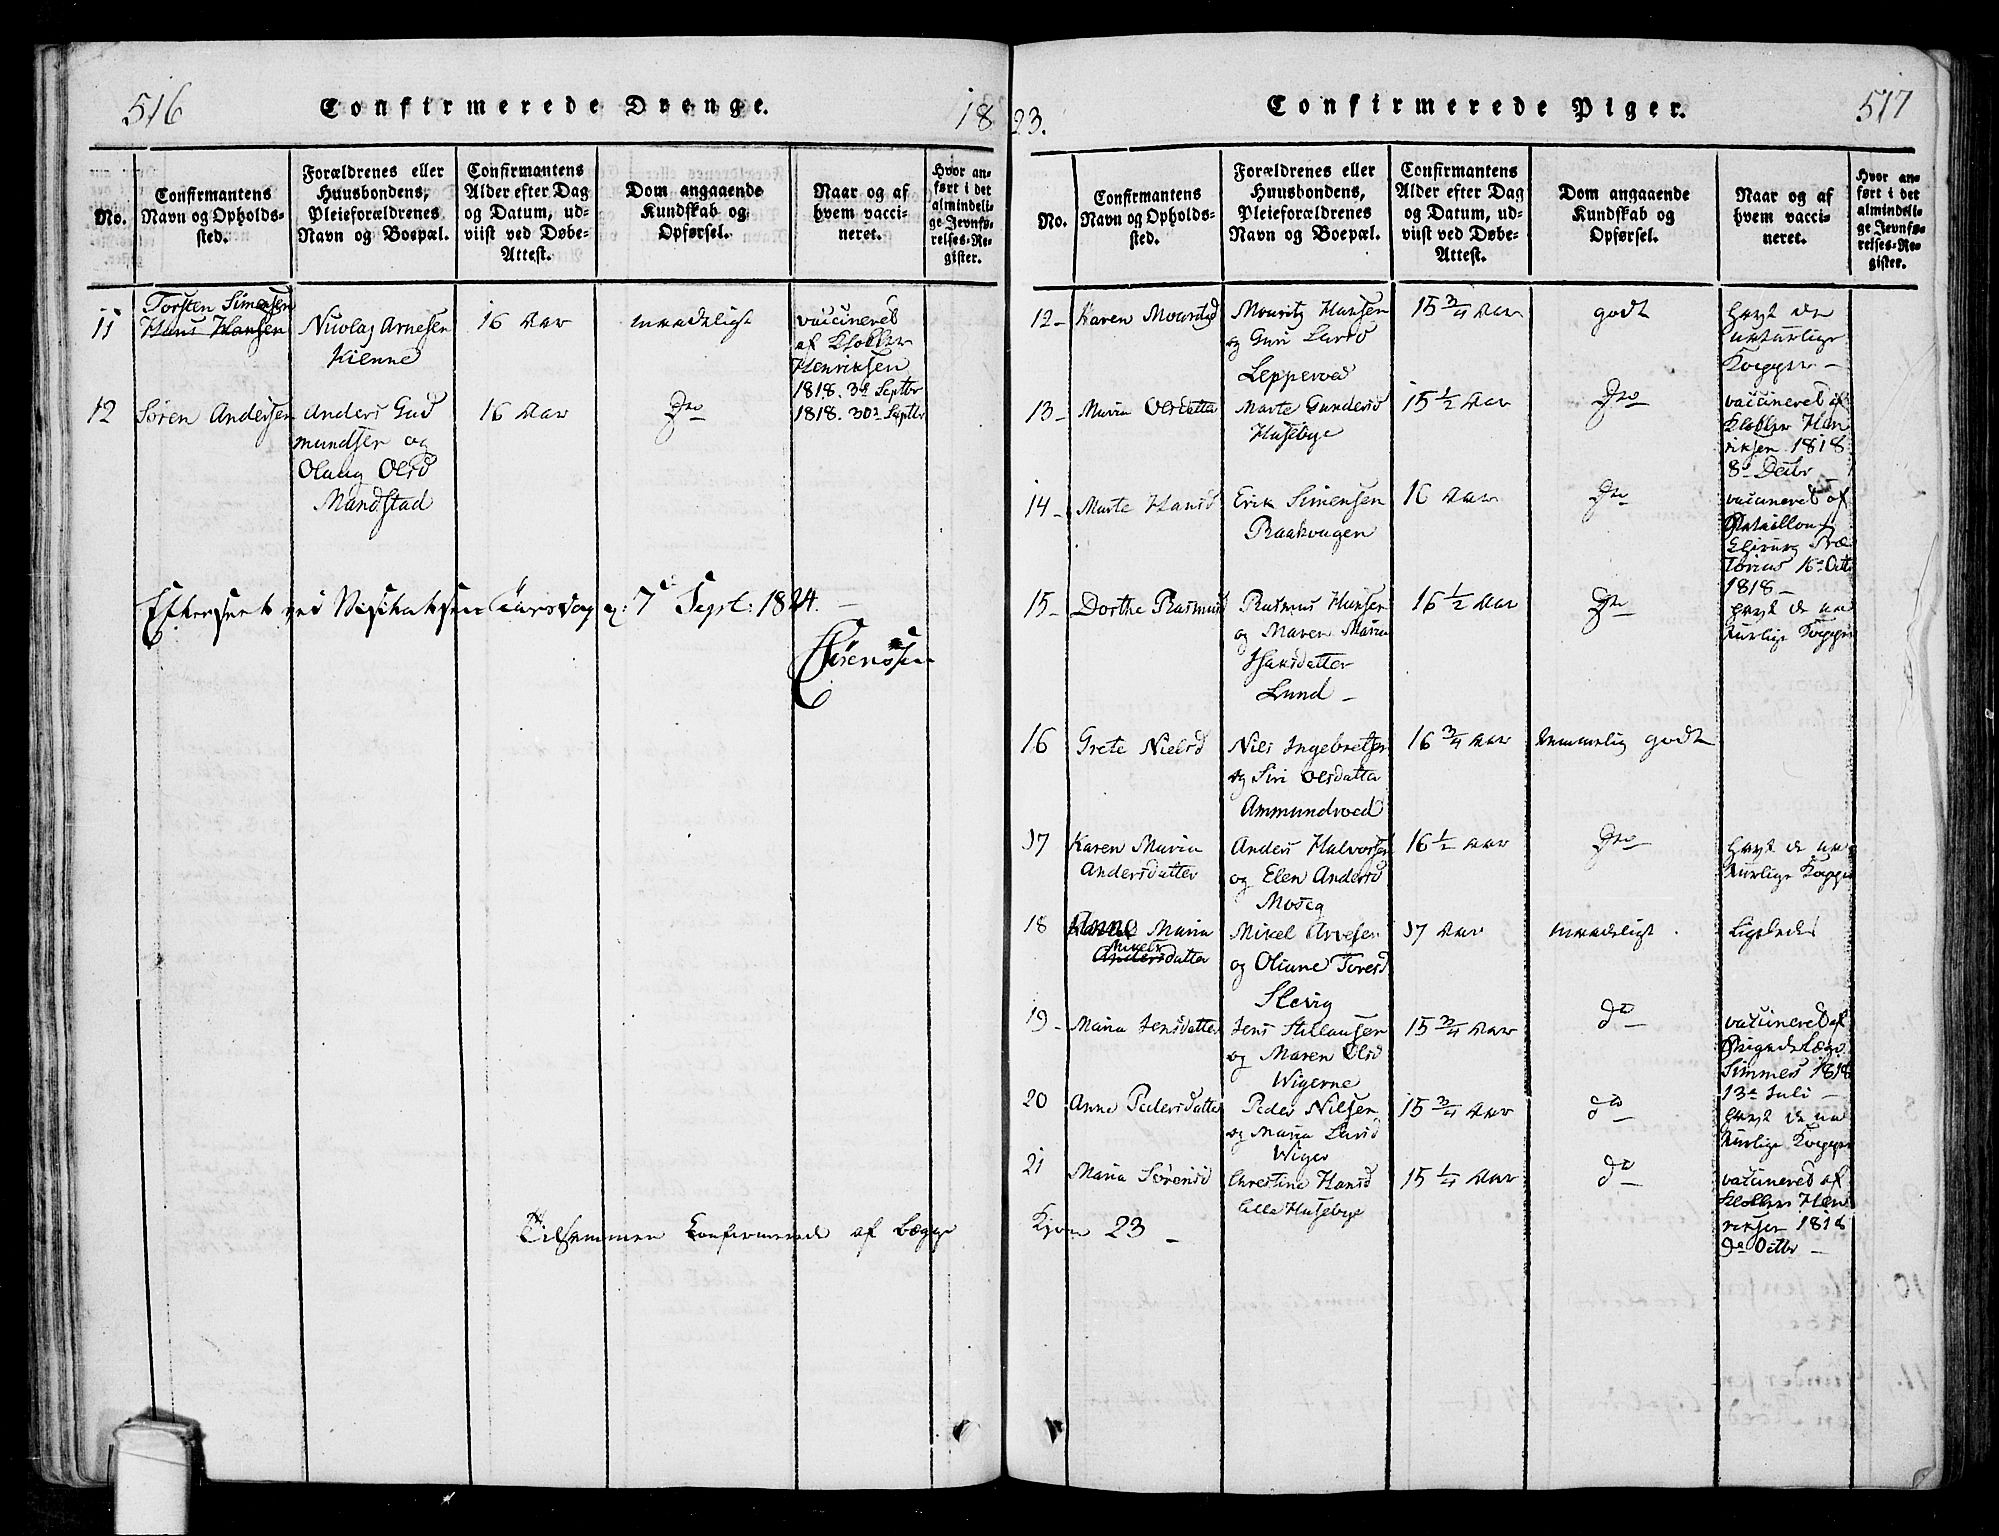 516
Confirmerede Drenge.
18
No.
Confirmantens
Navn og Opholds-
sted.
Forældrenes eller
Huusbondens,
Pleieforældrenes
Navn og Boepæl.
Confirmantens
Alder efter Dag
og Datum, ud-
viist ved Døbe-
Attest.
Dom angaaende
Kundskab og
Opførsel.
Naar og af
hvem vacci-
neret.
Hvor an-
ført i det
almindeli-
ge Jevnfø-
relses-Re-
gister.
11
Torsten Simensen
Hans Hansen
Nicolay Arnesen
Kienne
16 Aar
maadeligt
vaccineret
af Klokker
Henriksen
1818. 3d Septbr
12
Søren Andersen
Anders Gud
mundsen og
Olaug Olsd
Mandstad
16 Aar
Do
1818. 30d Septbr
Efterseet ved Visitatsen 7 Sept: 1824. —
Sørenssen
Tilsammen Confirmerede af begge
23.
Confirmerede Piger.
517
No.
Confirmantens
Navn og Opholds-
sted.
Forældrenes eller
Huusbondens,
Pleieforældrenes
Navn og Boepæl.
Confirmantens
Alder efter Dag
og Datum, ud-
viist ved Døbe-
Attest.
Dom angaaende
Kundskab og
Opførsel.
Naar og af
hvem vacci-
neret.
Hvor an-
ført i det
almindeli-
ge Jevnfø-
relses-Re-
gister.
12 -
Karen Mouritsd
Mouritz Hansen
og Guri Larsd
Lepperød
15 3/4 Aar
godt
havt de
naturlige
Kopper —
13 -
Maria Olsdatter
Marte Gundersd
Husebye
15 1/2 Aar
Do
vaccineret af
Klokker Hen
riksen 1818
8de Decbr
14 -
Marte Hansd
Erik Simensen
Raakvagen
16 Aar
Do
vaccineret af
Bataillons
Chirurg Præ
torius 16de Octb
1818 —
15 -
Dorthe Rasmusd
Rasmus Hansen
og Maren Maria
Isaksdatter
Lund —
16 1/2 Aar
Do
havt de na
turlige Kopper
16
Grete Nielsd
Nils Ingebretsen
og Siri Olsdatter
Ammundroed
16 3/4 Aar
temmelig godt
17
Karen Maria
Andersdatter
Anders Halvorsen
og Elen Andersd
Moseg
16 1/2 Aar
Do
havt de na
turlige Kopper
18
Anne Maria
Mikels
Andersdatter
Mikel Arvesen
og Oliane Toresd
Slevig
17 Aar
maadeligt
Ligeledes
19 -
Maria Jensdatter
Jens Stillaugsen
og Maren Olsd
Wigerne
15 3/4 Aar
do
vaccineret af
Brigadelæge
Simmers 1818
13de Juli —
20
Anne Pedersdatter
Peder Nilsen
og Maria Larsd
Wiger
15 3/4 Aar
do
havt de na
turlige Kopper
21
Maria Sørensd
Christine Hansd
lille Husebye
15 1/4 Aar
do
vaccineret af
Klokker Hen
riksen 1818
9de Octbr —
Kjøn 23 —